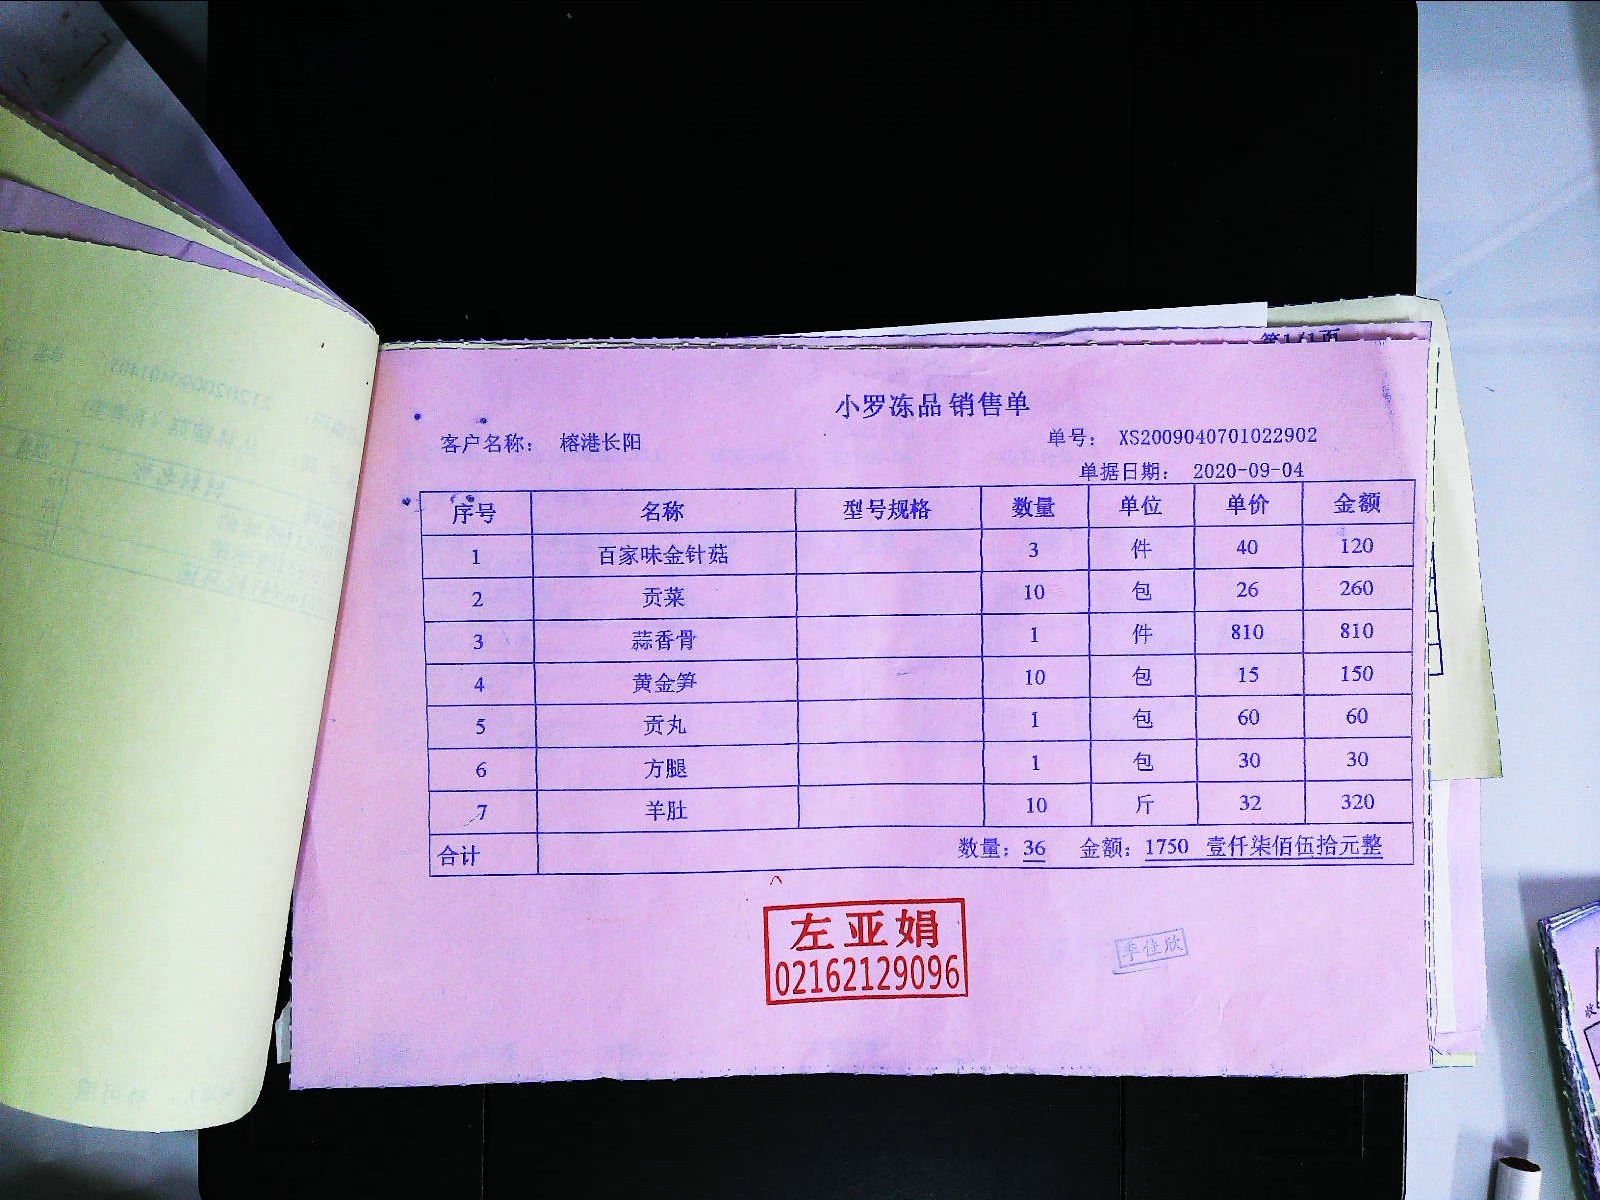 第1/1页
小罗冻品 销售单
客户名称： 榕港长阳 单号： XS2009040701022902
单据日期： 2020-09-04
序号 名称 型号规格 数量 单位 单价 金额
1 百家味金针菇 3 件 40 120
2 贡菜 10 包 26 260
3 蒜香骨 1 件 810 810
4 黄金笋 10 包 15 150
5 贡丸 1 包 60 60
6 方腿 1 包 30 30
7 羊肚 10 斤 32 320
合计 数量：36 金额：1750 壹仟柒佰伍拾元整
左亚娟
02162129096
季佳欣